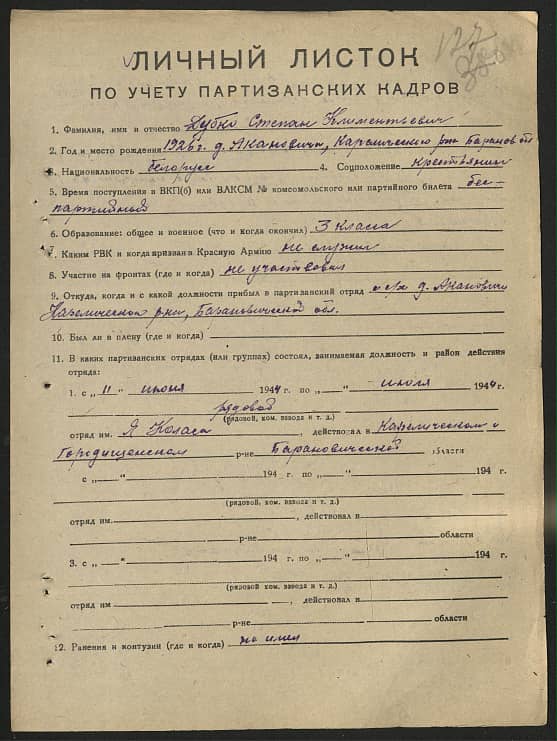 127
ЛИЧНЫЙ ЛИСТОК
ПО УЧЕТУ ПАРТИЗАНСКИХ КАДРОВ
1. Фамилия, имя и отчество Дубко Степан Климентьевич
2. Год и место рождения 1926 г. д. Акановичи, Карелическо р-на Баранов. обл
3. Национальность белорус 4. Соцположение крестьянин
5. Время поступления в ВКП(б) или ВЛКСМ № комсомольского или партийного билета бес-
партийный
6. Образование: общее и военное (что и когда окончил) 3 класса
7. Каким РВК и когда призван в Красную Армию не служил
8. Участие на фронтах (где и когда) не участвовал
9. Откуда, когда и с какой должности прибыл в партизанский отряд с/х д. Акановичи
Карелическо р-на, Барановической обл.
10. Был ли в плену (где и когда)
11. В каких партизанских отрядах (или группах) состоял, занимаемая должность и район действия
отряда:
1. с „ 11 “ июня 1944 г. по „ “ июля 1944 г.
рядовой
(рядовой, ком. взвода и т. д.)
отряд им. Я Коласа, действовал в Карелическом и
Городищенском р-не Барановической области
с „ “ 194 г. по „ “ 194 г.
(рядовой, ком. взвода и т. д.)
отряд им. , действовал в
р-не области
3. с „ “ 194 г. по „ “ 194 г.
(рядовой, ком. взвода и т. д.)
отряд им , действовал в
р-не области
12. Ранения и контузии (где и когда) не имел